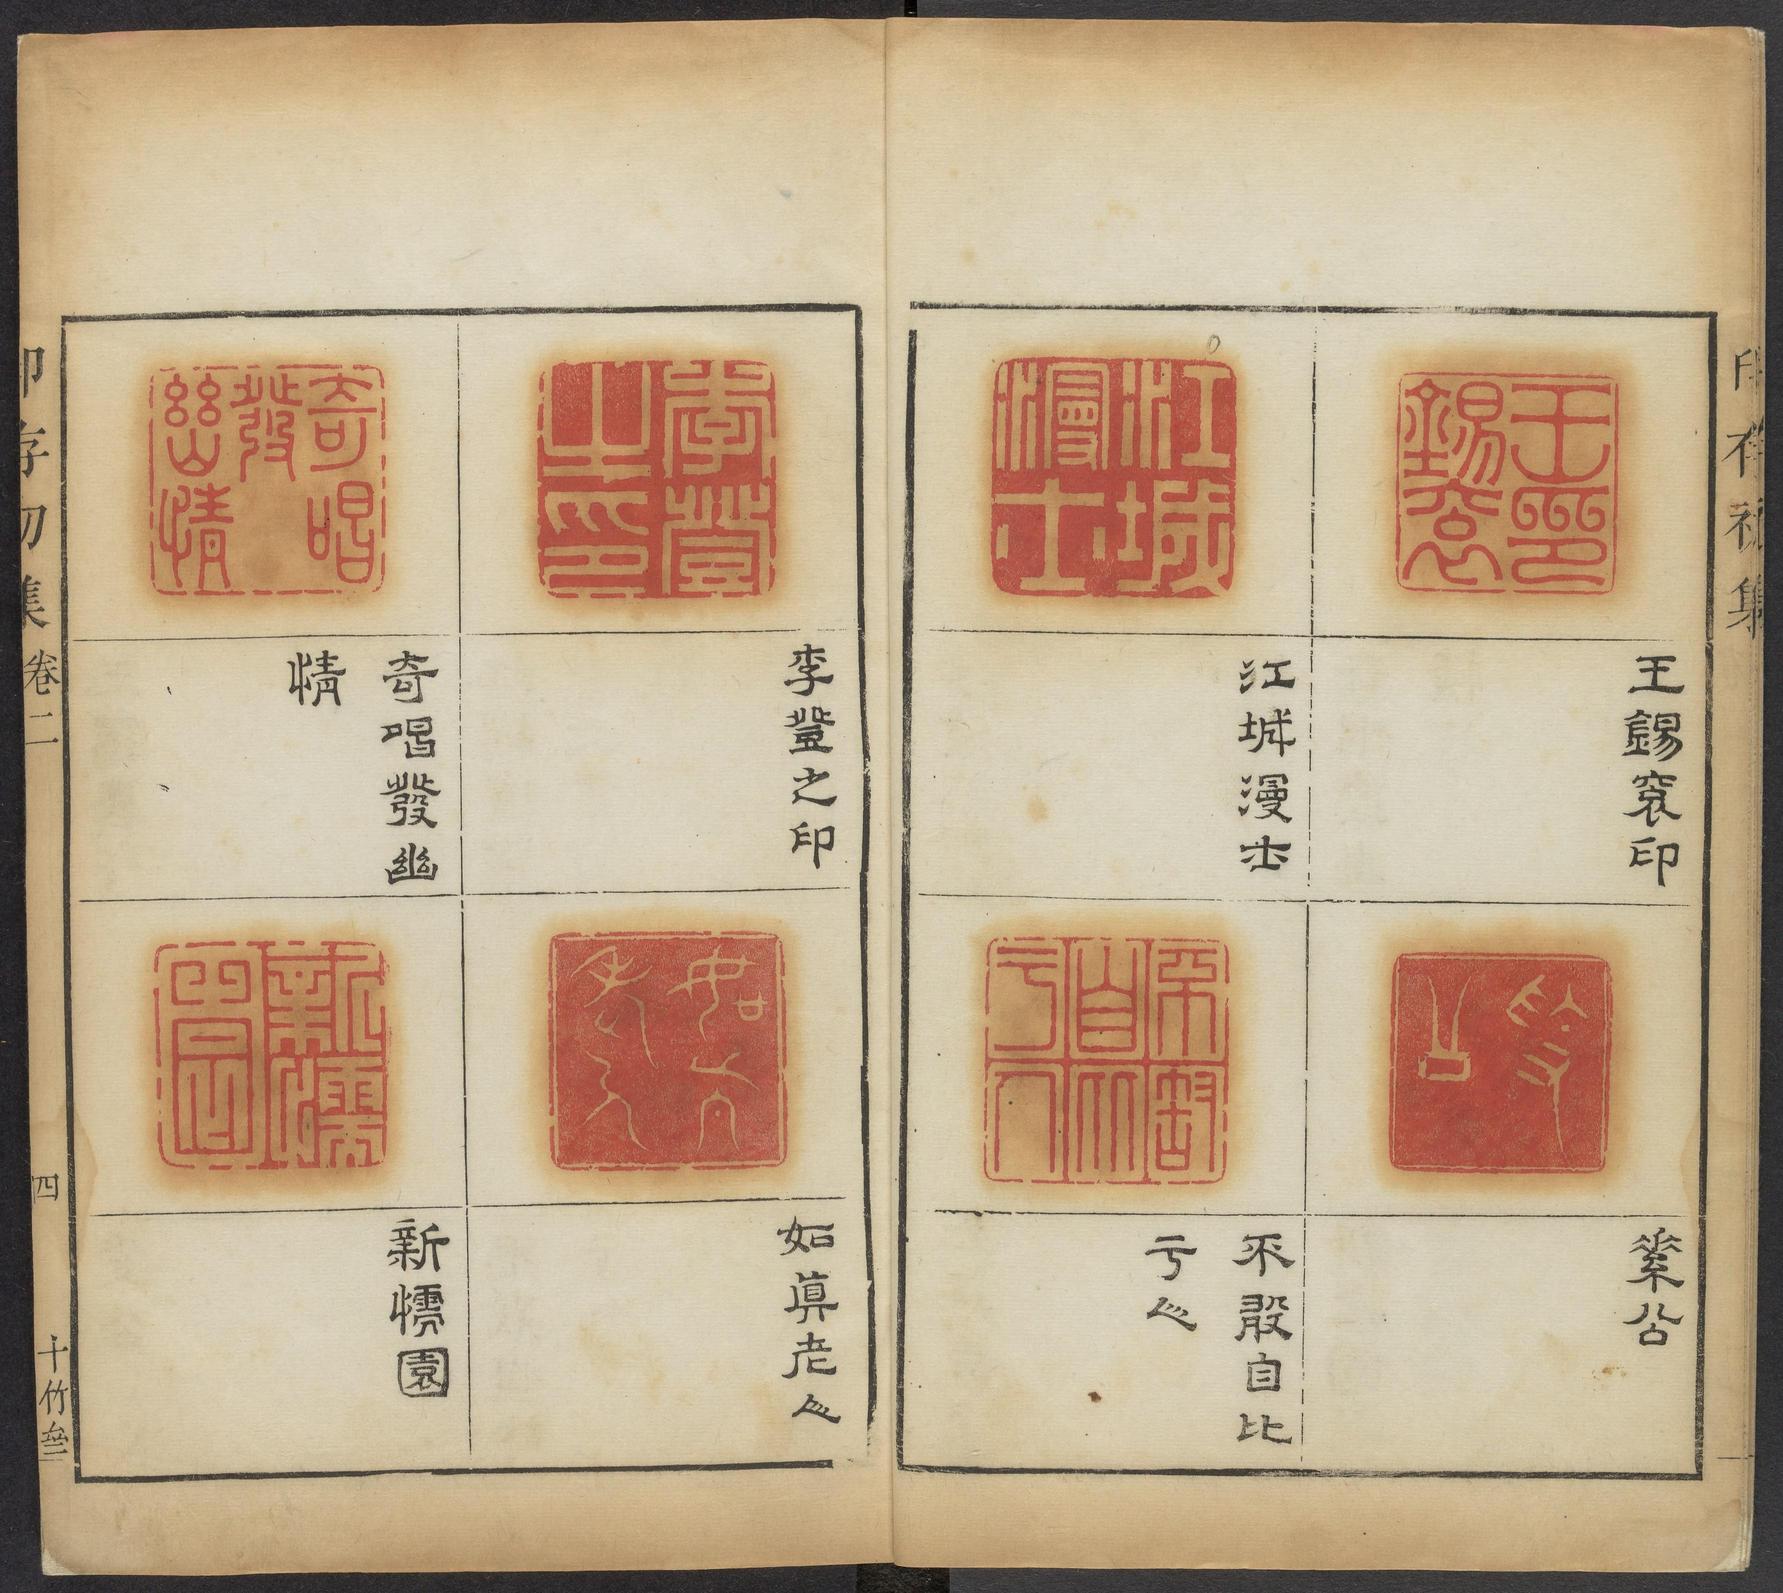 印存初集
王錫袞印
江城漫士
素公
不敢自比
亏人
李登之印
奇唱發幽
情
如真老人
新懦園
印存初集
卷二
四
十竹